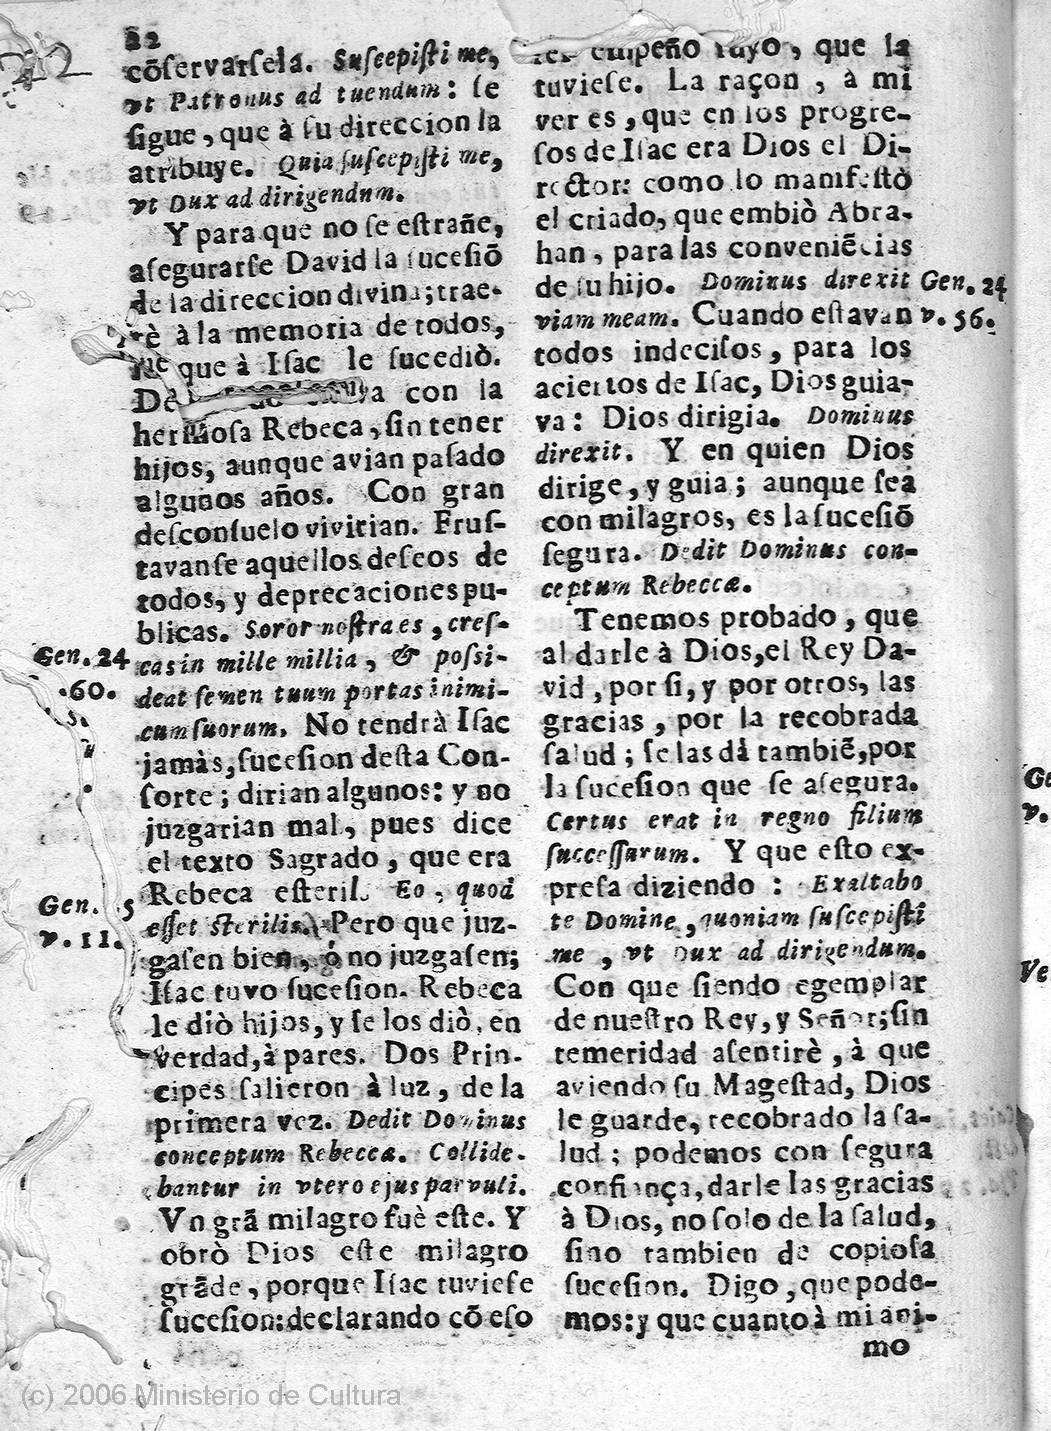 22
cõſervarſela. Suſcepiſti me,
vt Patronus ad tuendum: ſe
ſigue, que à ſu direccion la
atribuye. Quia ſuſcepiſti me,
vt Dux ad dirigendum.
Y para que no ſe eſtrañe,
aſegurarſe David la ſuceſiõ
de la direccion divina; trae-
rè à la memoria de todos,
que à Iſac le ſucediò.
con la
hermoſa Rebeca, ſin tener
hijos, aunque avian paſado
algunos años. Con gran
deſconſuelo vivirian. Fruſ-
tavanſe aquellos deſeos de
todos, y deprecaciones pu-
blicas. Soror noſtra es, creſ-
cas in mille millia, & poſsi-
deat ſemen tuum portas inimi-
cum ſuorum. No tendrà Iſac
jamàs, ſuceſion deſta Con-
ſorte; dirian algunos: y no
juzgarian mal, pues dice
el texto Sagrado, que era
Rebeca eſteril. Eo, quod
eſſet ſterilis. Pero que juz-
gaſen bien, ó no juzgaſen;
Iſac tuvo ſuceſion. Rebeca
le diò hijos, y ſe los diò, en
verdad, à pares. Dos Prin-
cipes ſalieron à luz, de la
primera vez. Dedit Dominus
conceptum Rebeccæ. Collide-
bantur in vtero ejus parvuli.
Vn grã milagro fuè eſte. Y
obrò Dios eſte milagro
grãde, porque Iſac tuvieſe
ſuceſion: declarando cõ eſo
Gen. 24
.60.
Gen. 25
v. 11.
ſer empeño ſuyo, que la
tuvieſe. La raçon, à mi
ver es, que en los progre-
ſos de Iſac era Dios el Di-
rector: como lo manifeſtò
el criado, que embiò Abra-
han, para las conveniẽcias
de ſu hijo. Dominus direxit
viam meam. Cuando eſtavan
todos indeciſos, para los
aciertos de Iſac, Dios guia-
va: Dios dirigia. Dominus
direxit. Y en quien Dios
dirige, y guia; aunque ſea
con milagros, es la ſuceſiõ
ſegura. Dedit Dominus con-
ceptum Rebeccæ.
Tenemos probado, que
al darle à Dios, el Rey Da-
vid, por ſi, y por otros, las
gracias, por la recobrada
ſalud; ſe las dá tambiẽ, por
la ſuceſion que ſe aſegura.
Certus erat in regno filium
ſucceſſurum. Y que eſto ex-
preſa diziendo: Exaltabo
te Domine, quoniam ſuſcepiſti
me, vt Dux ad dirigendum.
Con que ſiendo egemplar
de nueſtro Rey, y Señor; ſin
temeridad aſentirè, à que
aviendo ſu Mageſtad, Dios
le guarde, recobrado la ſa-
lud; podemos con ſegura
confiança, darle las gracias
à Dios, no ſolo de la ſalud,
ſino tambien de copioſa
ſuceſion. Digo, que pode-
mos: y que cuanto à mi ani-
mo
Gen. 24
v. 56.
Ge
v.
Ve
(c) 2006 Ministerio de Cultura